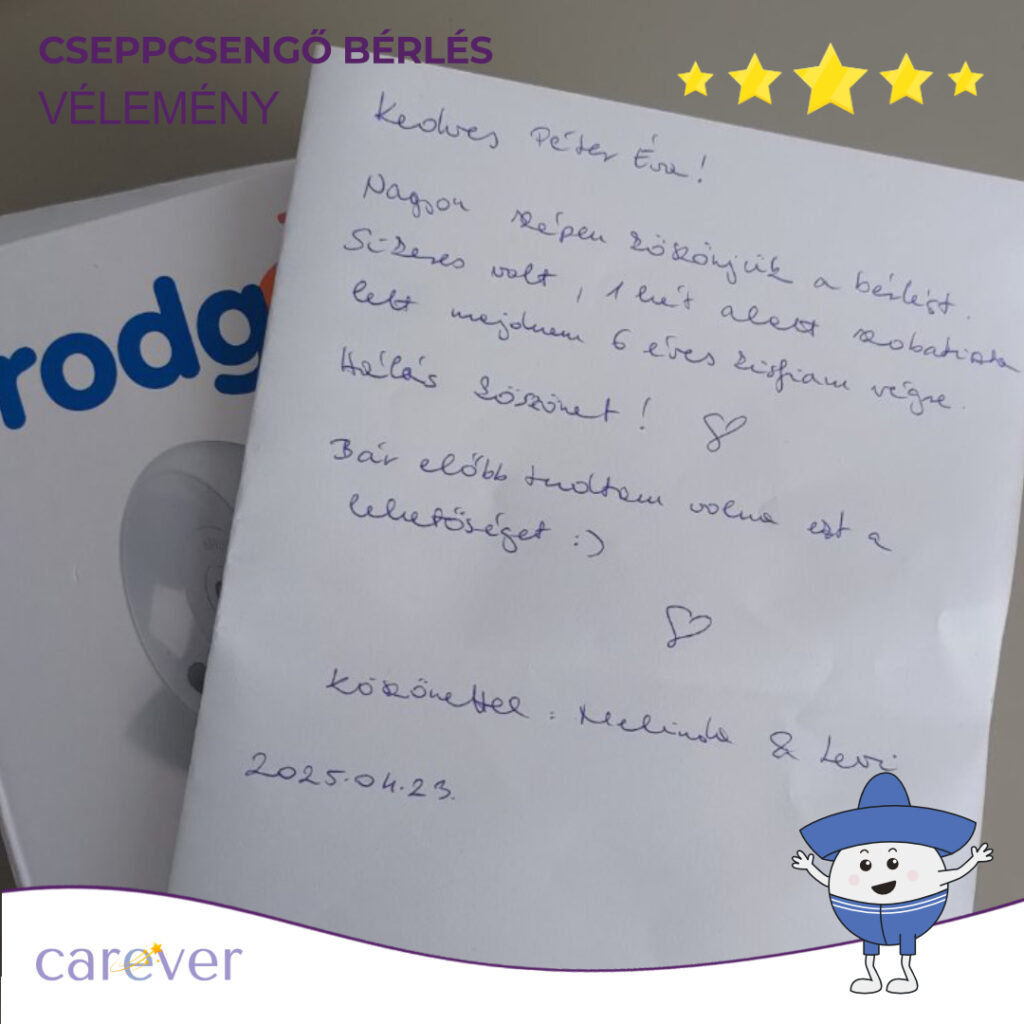 CSEPPCSENGŐ BÉRLÉS
VÉLEMÉNY
Kedves Péter Éva!
Nagyon szépen köszönjük a bérlést.
Sikeres volt, 1 hét alatt szobatiszta
lett majdnem 6 éves kisfiam végre.
Hálás köszönet!
Bár előbb tudtam volna ezt a
lehetőséget :)
Köszönettel: Melinda & Levi
2025.04.23.
rodg
carever